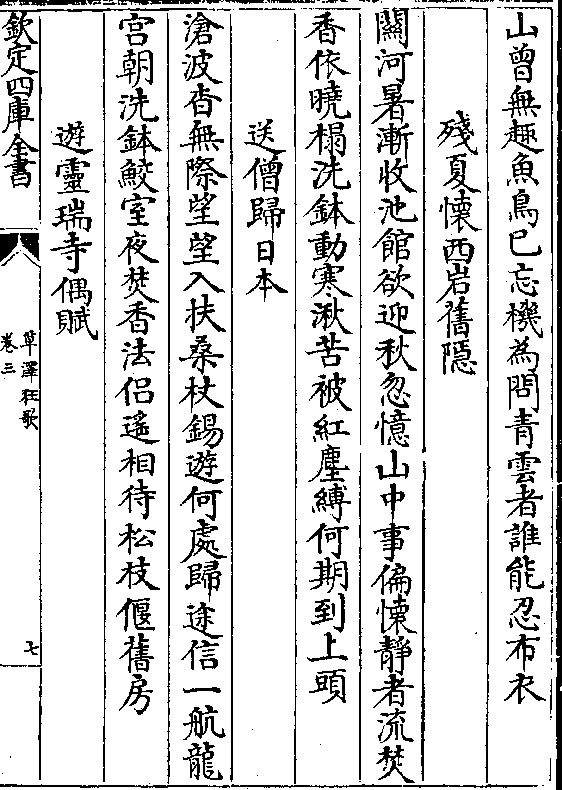 山曾無趣魚鳥已忘機為問青雲者誰能忍布衣
殘夏懐西岩舊隠
闗河暑漸收池館欲迎秋忽憶山中事偏懐靜者流焚
香依曉榻洗鉢動寒湫苦被紅塵縛何期到上頭
送僧歸日本
滄波杳無際望望入扶桑杖錫遊何處歸途信一航龍
宫朝洗鉢鮫室夜焚香法侣遥相待松枝偃舊房
遊靈瑞寺偶賦
欽定四庫全書
草澤狂歌
卷三
七